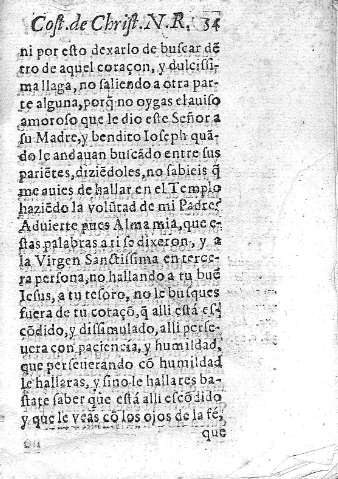 Cost. de Christ. N. R. 34
ni por esto dexarlo de buscar dē
tro de aquel coraçon, y dulcissi-
ma llaga, no saliendo a otra par-
te alguna, porq̃ no oygas el auiso
amoroso que le dio este Señor a
su Madre, y bendito Ioseph quā-
do le andauan buscādo entre sus
pariētes, diziēdoles, no sabieis q̃
me auies de hallar en el Templo
haziēdo la volūtad de mi Padre?
Aduierte pues Alma mia, que e-
stas palabras a ti se dixeron, y a
la Virgen Sanctissima en terce-
ra persona, no hallando a tu buē
Iesus, a tu tesoro, no le busques
fuera de tu coraçō, q̃ alli está es-
cōdido, y dissimulado, alli perse-
uera con paciencia, y humildad,
que perseuerando cō humildad
le hallaras, y sino le hallares ba-
state saber que está alli escōdido
y que le veas cō los ojos de la fé,
que